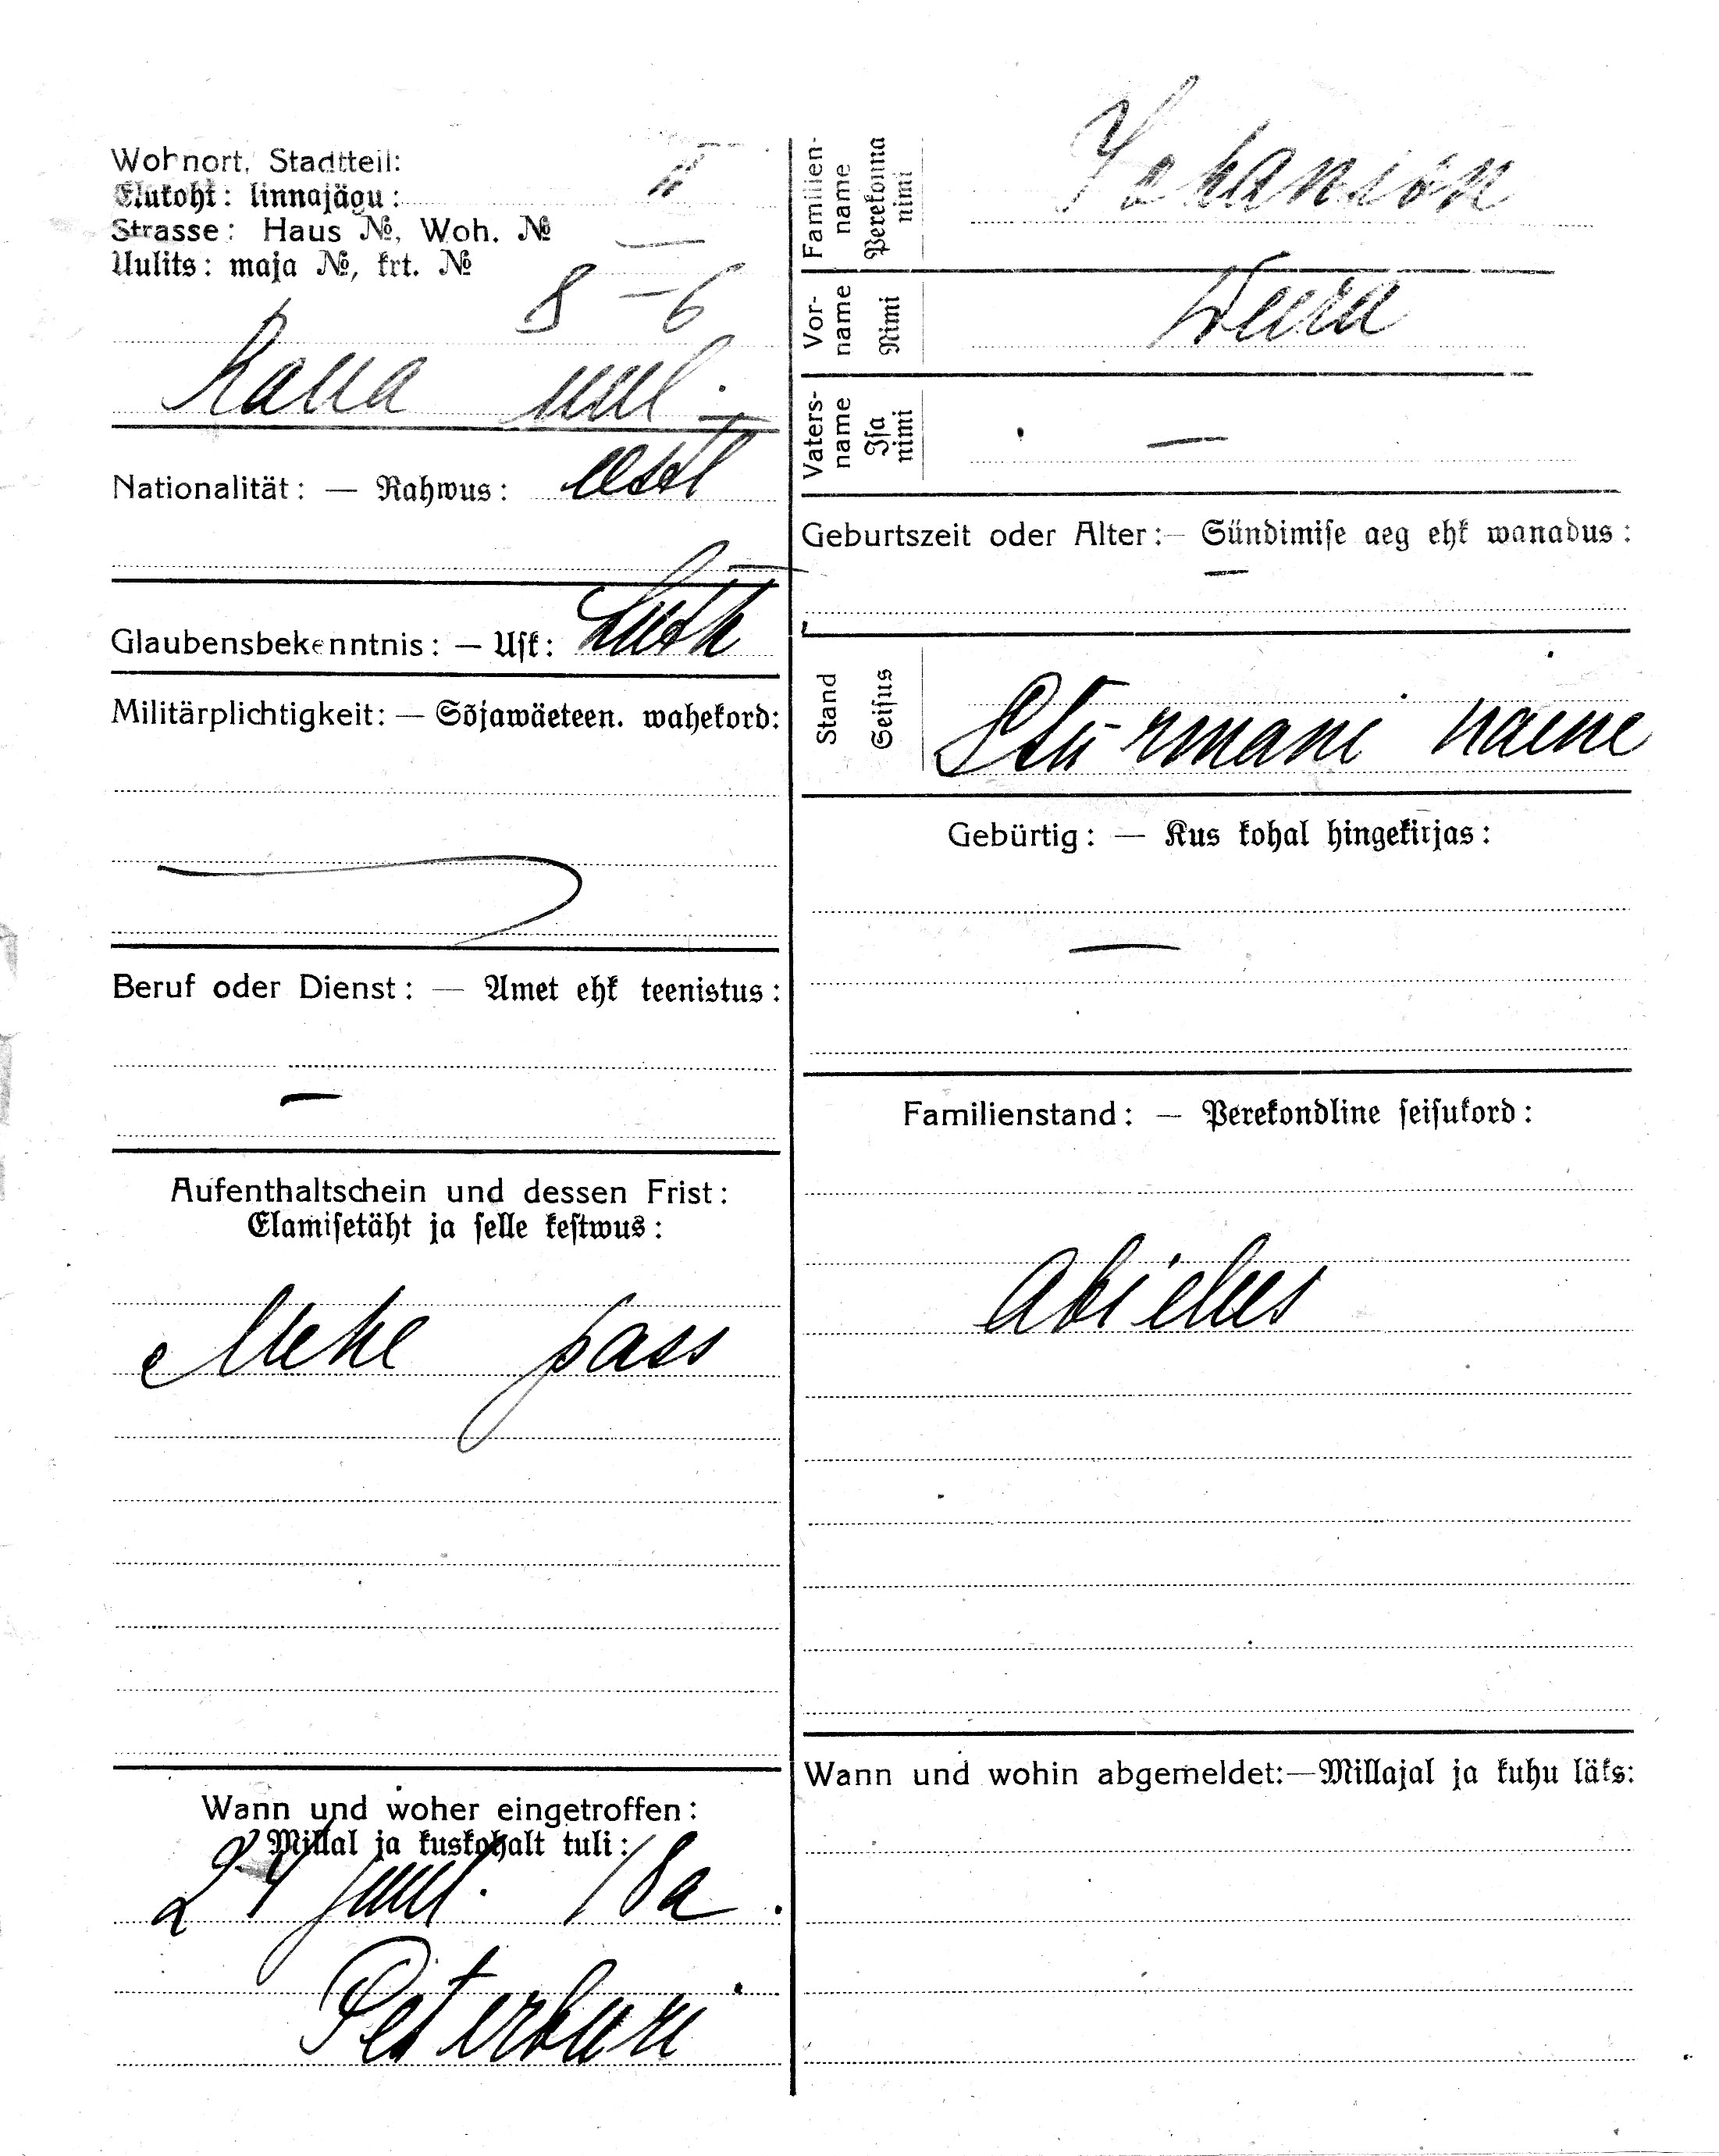 Wohnort, Stadtteil:
Elukoht: linnajägu: II
Strasse: Haus №, Woh. №
Uulits: maja №, krt. №
8 – 6
Kalla uul.
Nationalität: — Rahwus: eestl
Glaubensbekenntnis: — Usk: Luth
Militärplichtigkeit: — Sõjawäeteen. wahekord:
Beruf oder Dienst: — Amet ehk teenistus:
—
Aufenthaltschein und dessen Frist:
Elamisetäht ja selle kestwus:
Mehe pass
Wann und woher eingetroffen:
Millal ja kuskohalt tuli:
24 juuli. 18 a.
Peterburi
Familien-name Perekonna nimi Johanson
Vor-name Nimi Weera
Vaters-name Isa nimi —
Geburtszeit oder Alter: — Sündimise aeg ehk wanadus:
—
Stand Seisus Stürmani naene
Gebürtig: — Kus kohal hingekirjas:
—
Familienstand: — Perekondline seisukord:
Abielus
Wann und wohin abgemeldet:—Millajal ja kuhu läks: